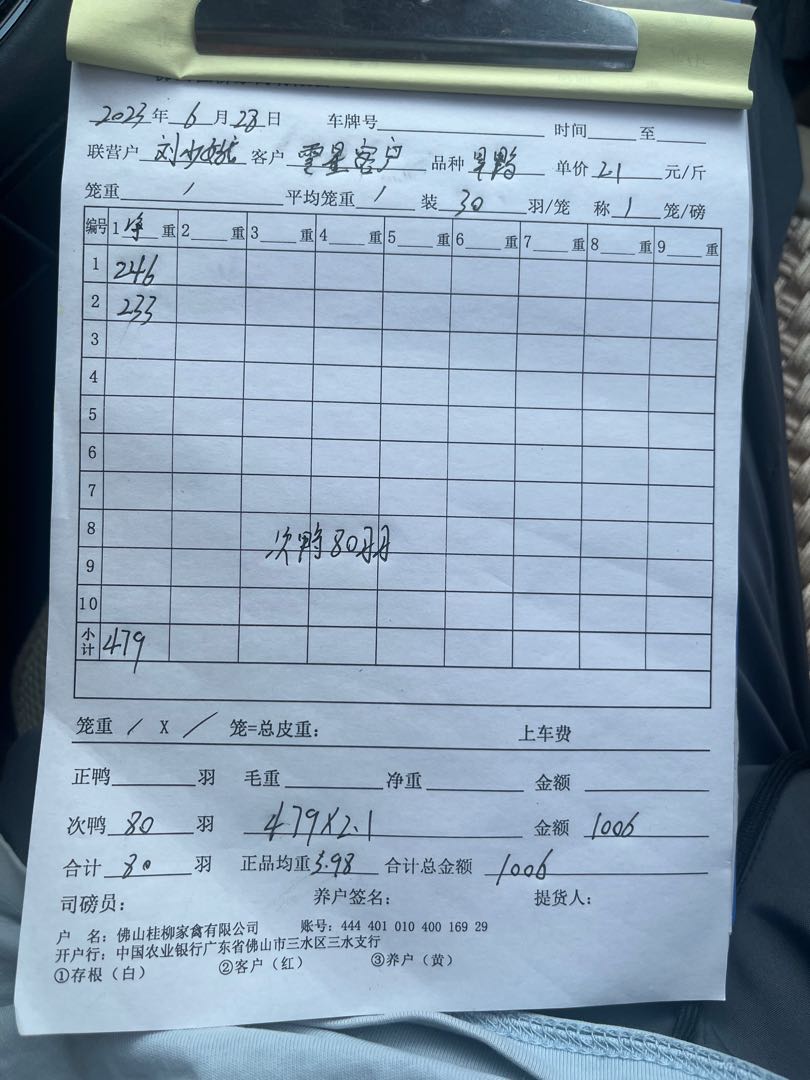 2023年 6月 23日 车牌号 时间 至
联营户 刘 客户 零星客户 品种 单价 21 元/斤
笼重 / 平均笼重 / 装 30 羽/笼 称 1 笼/磅
编号 1 净 重 2 重 3 重 4 重 5 重 6 重 7 重 8 重 9 重
1 246
2 233
3
4
5
6
7
8
次鸭80羽
9
10
小计 479
笼重 / X / 笼=总皮重: 上车费
正鸭 羽 毛重 净重 金额
次鸭 80 羽 479X2.1 金额 1006
合计 80 羽 正品均重 5.98 合计总金额 1006
司磅员: 养户签名: 提货人:
户 名: 佛山桂柳家禽有限公司 账号: 444 401 010 400 169 29
开户行: 中国农业银行广东省佛山市三水区三水支行
①存根(白) ②客户(红) ③养户(黄)